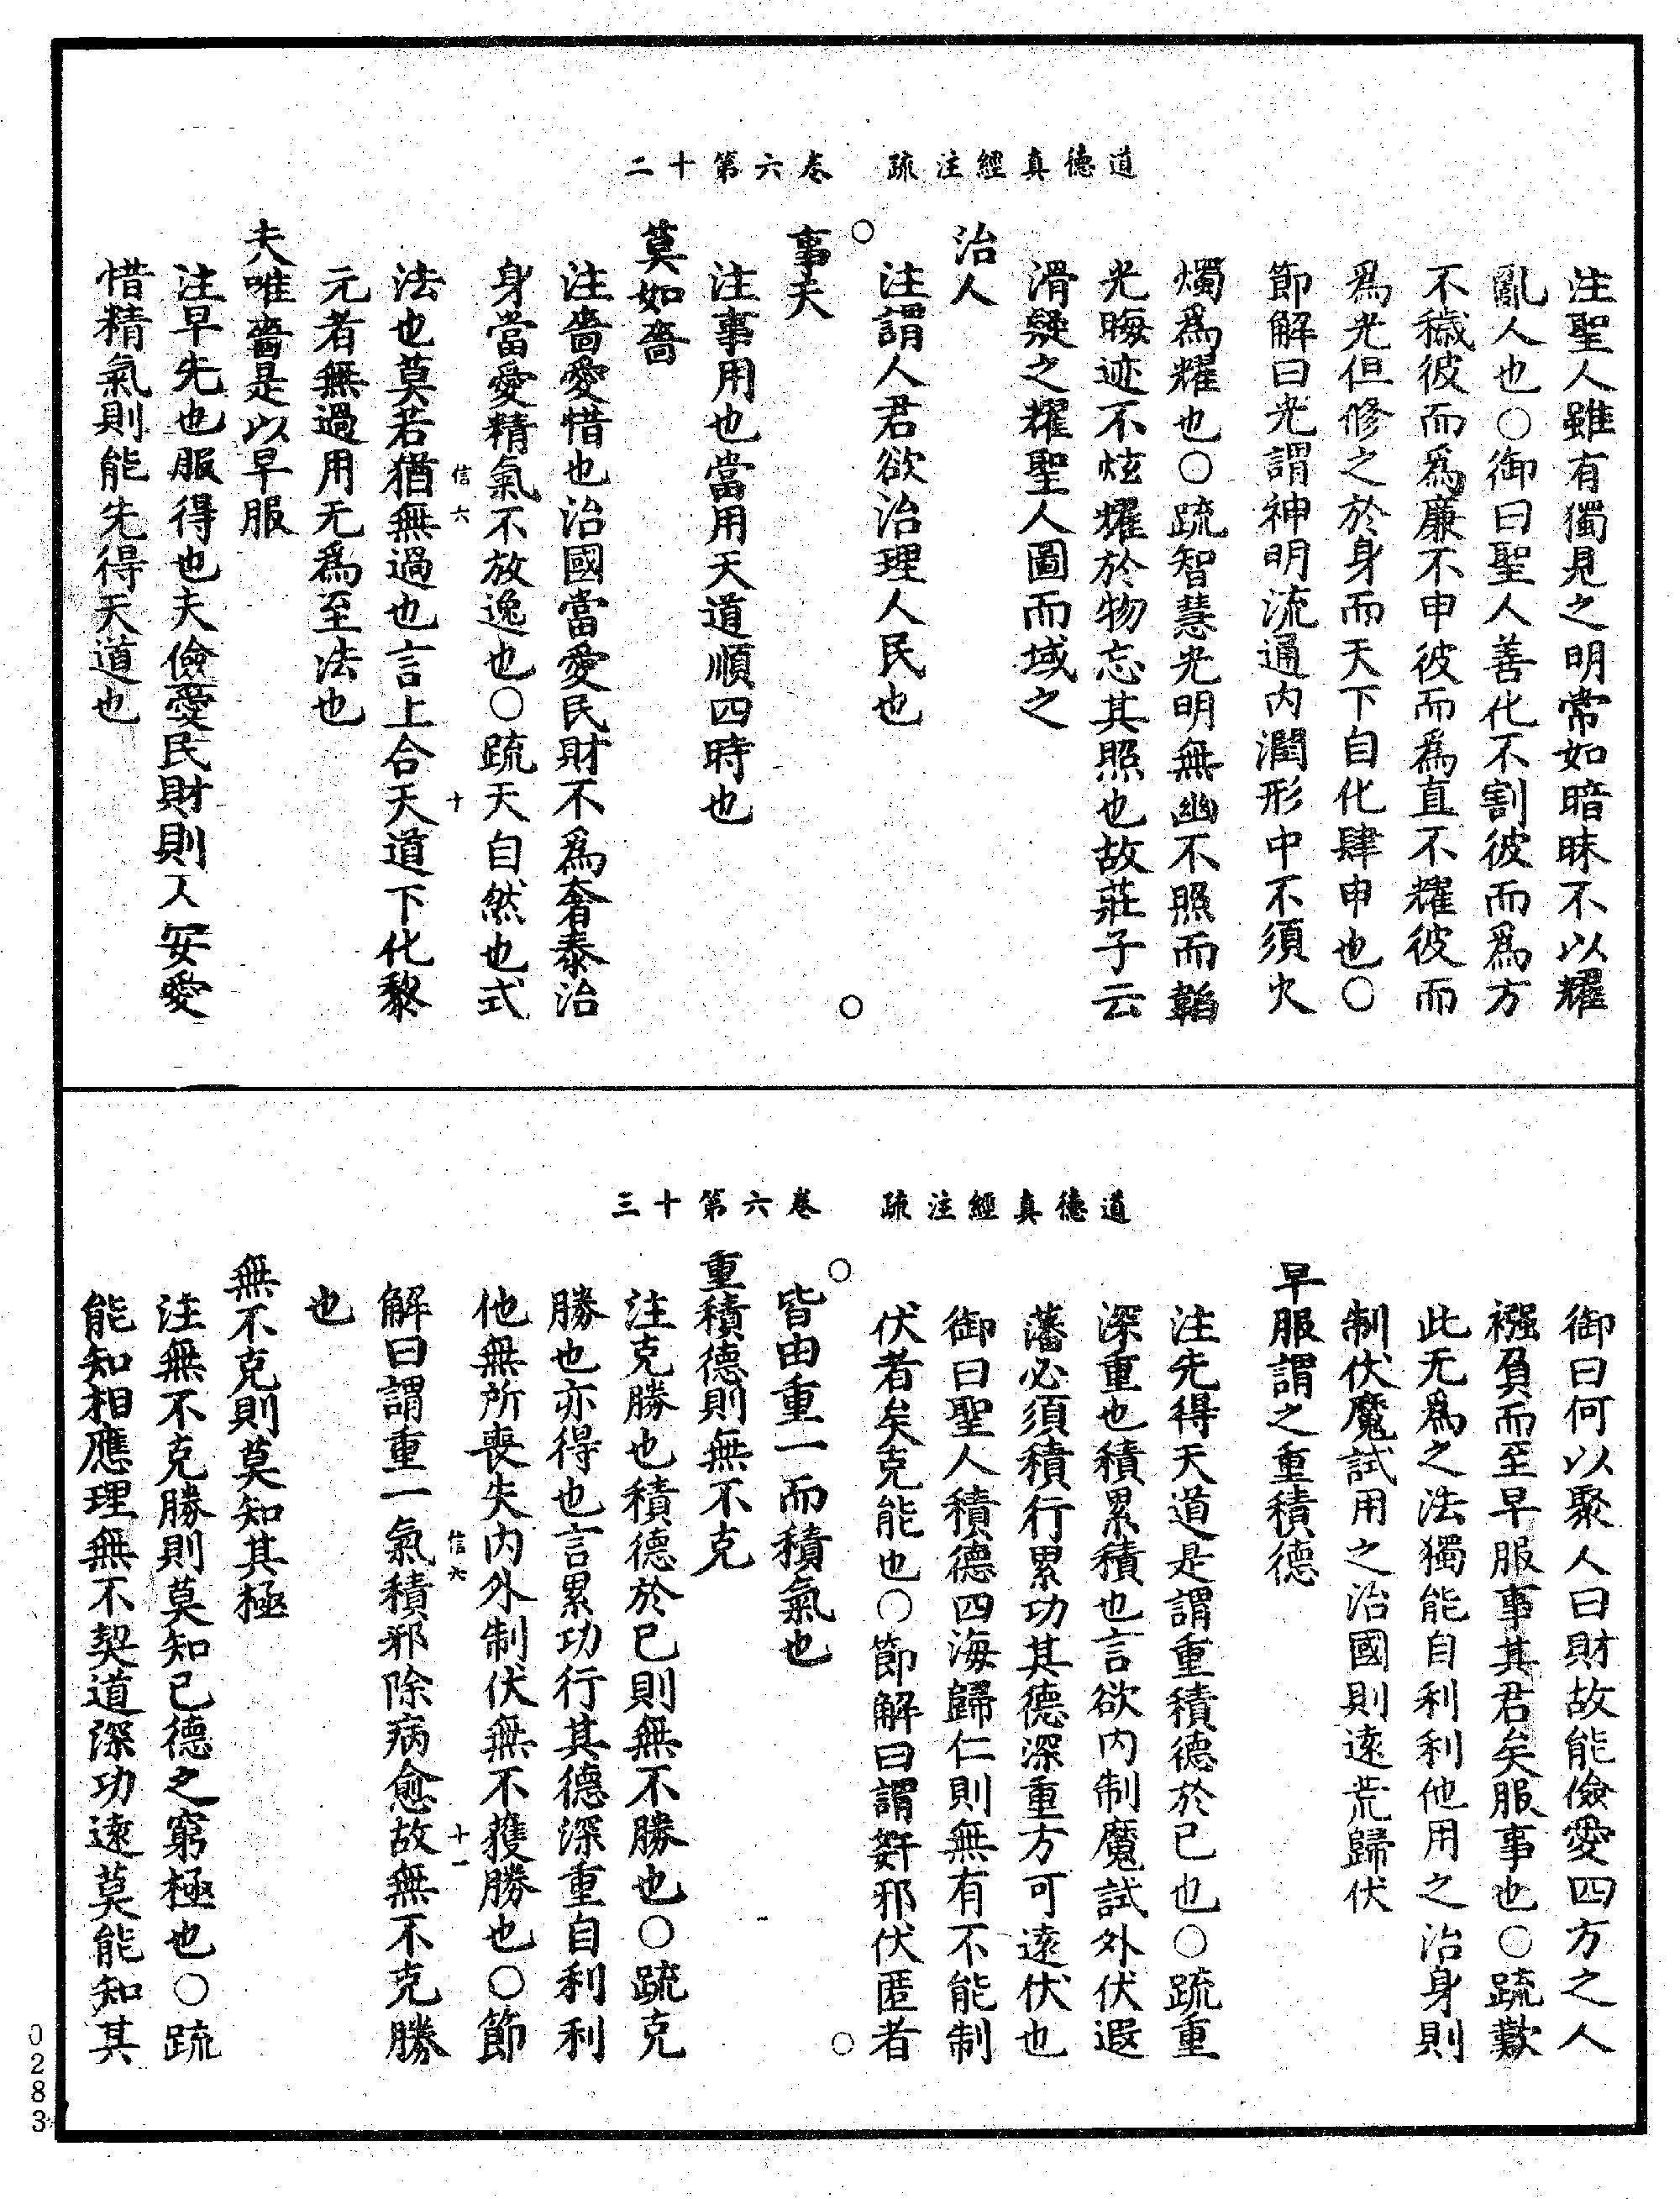 道德真經注疏 卷六第十二
注聖人雖有獨見之明常如暗昧不以耀
亂人也○御曰聖人善化不割彼而爲方
不穢彼而爲廉不申彼而爲直不耀彼而
爲光但修之於身而天下自化肆申也○
節解曰光謂神明流通內潤形中不須火
燭爲耀也○疏智慧光明無幽不照而韜
光晦迹不炫燿於物忘其照也故莊子云
滑疑之耀聖人圖而域之
治人
注謂人君欲治理人民也
○ ○
事天
注事用也當用天道順四時也
莫如嗇
注嗇愛惜也治國當愛民財不爲奢泰治
身當愛精氣不放逸也○疏天自然也式
信六 十
法也莫若猶無過也言上合天道下化黎
元者無過用无爲至法也
夫唯嗇是以早服
注早先也服得也夫儉愛民財則人安愛
惜精氣則能先得天道也
道德真經注疏 卷六第十三
御曰何以聚人曰財故能儉愛四方之人
襁負而至早服事其君矣服事也○疏歎
此无爲之法獨能自利利他用之治身則
制伏魔試用之治國則遠荒歸伏
早服謂之重積德
注先得天道是謂重積德於已也○疏重
深重也積累積也言欲內制魔試外伏遐
藩必須積行累功其德深重方可遠伏也
御曰聖人積德四海歸仁則無有不能制
伏者矣克能也○節解曰謂姧邪伏匿者
○ ○
皆由重一而積氣也
重積德則無不克
注克勝也積德於已則無不勝也○疏克
勝也亦得也言累功行其德深重自利利
他無所喪失內外制伏無不獲勝也○節
信六 十一
解曰謂重一氣積邪除病愈故無不克勝
也
無不克則莫知其極
注無不克勝則莫知已德之窮極也○疏
能知相應理無不契道深功遠莫能知其
0283